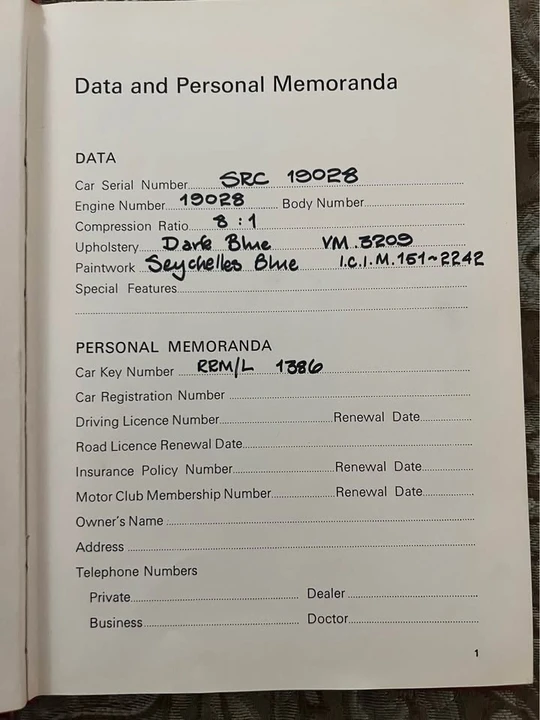 Data and Personal Memoranda
DATA
Car Serial Number SRC 19028
Engine Number 19028 Body Number
Compression Ratio 8 : 1
Upholstery Dark Blue VM.3209
Paintwork Seychelles Blue I.C.I.M.151~2242
Special Features
PERSONAL MEMORANDA
Car Key Number RRM/L 1386
Car Registration Number
Driving Licence Number Renewal Date
Road Licence Renewal Date
Insurance Policy Number Renewal Date
Motor Club Membership Number Renewal Date
Owner's Name
Address
Telephone Numbers
Private Dealer
Business Doctor
1